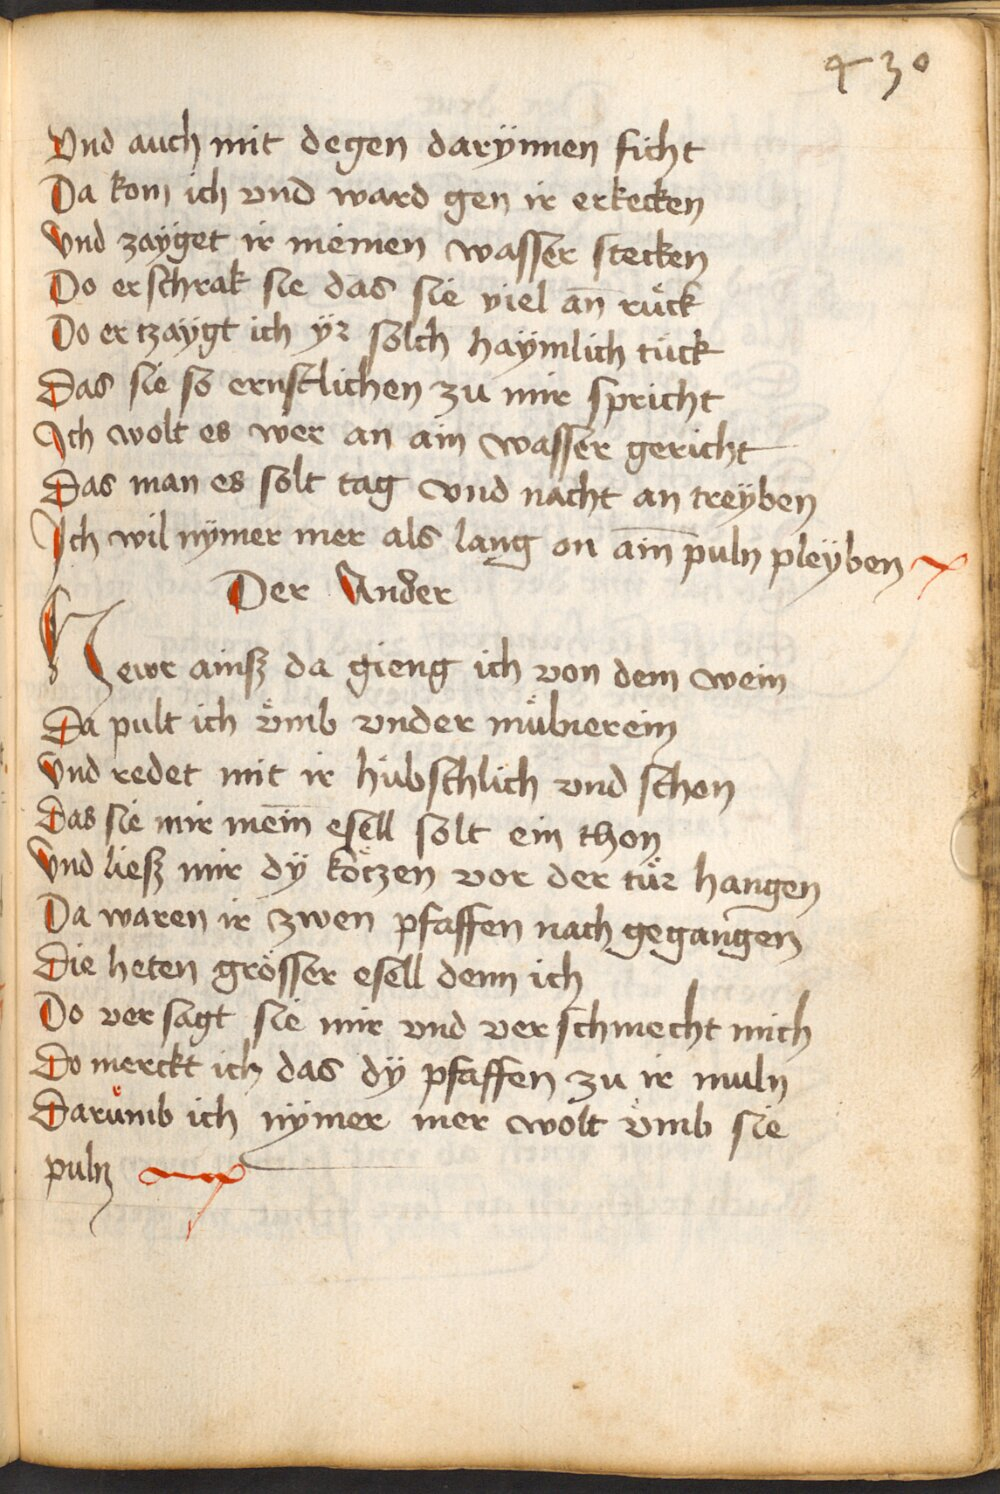 430
Vnd auch mit degen darÿnnen ficht
Da kom ich vnd ward gen ir erkecken
Vnd zayget ir meinen wasser stecken
Do erschrak sie das sie viel an̄ ruͤck
Do er tzaygt ich yr solch haÿmlich tuͤck
Das sie so ernstlichen zu mir spricht
Ich wolt es wer an ain wasser gericht
Das man es solt tag vnd nacht an treÿben
Ich wil nÿmer mer als lang on ain̄ puln pleÿben
Der Ander
Newr ainß da gieng ich von dem wein
Da pult ich vͤmb vnder
Vnd redet mit ir hubschlich vnd schon
Das sie mir mein̄ esell solt ein thon
Vnd ließ mir dÿ koͤtzen vor der tuͤr hangen
Da waren ir zwen pfaffen nach gegangen
Die heten groͤsser esell denn ich
Do versagt sie mir vnd verschmecht mich
Do merckt ich das dÿ pfaffen zu ir muln
Daruͤmb ich nÿmer mer wolt vͤmb sie
puln